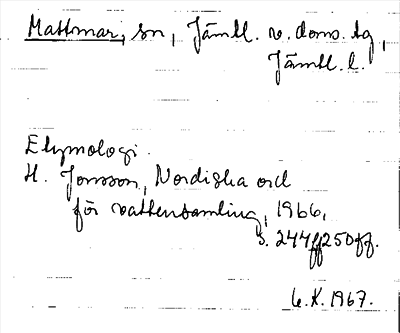 Mattmar, sn, Jämtl. v. doms. tg,
Jämtl. l.
Etymologi.
H. Jonsson, Nordiska ord
för vattensamling, 1966,
s. 244ff 250ff.
6.X.1967.